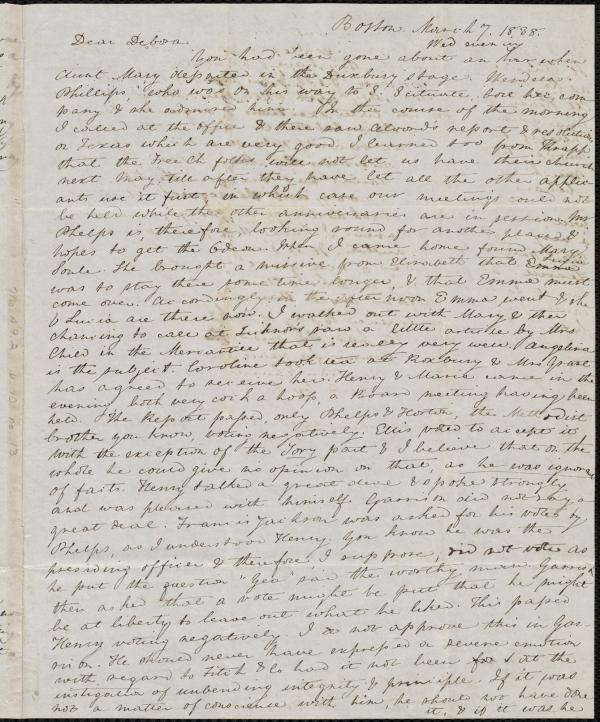 Boston March 7. 1838.
Wed evening
Dear Debora.
You had been gone about an hour when
Aunt Mary departed in the Duxbury stage. Wendell
Phillips, who was on his way to Scituate, bore her com
pany & she admired him. In the course of the morning
I called at the office & there saw Alvord's report & resolutions
on Texas which are very good. I learned too from Knapp
that the Free Ch folks will not let us have their church
next May till after they have let all the other applic
ants use it first, in which case our meetings could not
be held while the other anniversaries are in session. Mr
Phelps is therefore looking round for another place &
hopes to get the Odeon. When I came home found Mary
Soule. She brought a missive from Elizabeth that Lucia
was to stay there some time longer, & that Emma must
come over. Accordingly, in the afternoon Emma went & she
& Lucia are there now. I walked out with Mary & then
chancing to call at Ticknor's saw a little article by Mrs
Child in the Mercantile that is very very well. Angelina
is the subject. Caroline took tea at Roxbury & Mrs
has agreed to receive her. Henry & Maria came in the
evening both very cock a hoop, a Board meeting having been
held. The Report passed only Phelps & Horton, the Methodist
brother you know, voting negatively. Ellis voted to accept it
with the exception of the Tory part & I believe that on the
whole he could give no opinion on that, as he was ignorant
of facts. Henry talked a great deal & spoke strongly
and was pleased with himself. Garrison did not say a
great deal. Francis Jackson was asked for his vote by
Phelps, as I understood Henry. You know he was the
presiding officer & therefore, I suppose, did not vote as
he put the question "Yea" said the worthy man. Garrison
then asked that a vote might be put that he might
be at liberty to leave out what he liked. This passed
Henry voting negatively. I do not approve this in Gar-
rison. He should never have expressed a severe emotion
with regard to Fitch & Co had it not been for & at the
instigation of unbending integrity & principle. If it was
not a matter of conscience with him, he should not have done
it, & if it was, he